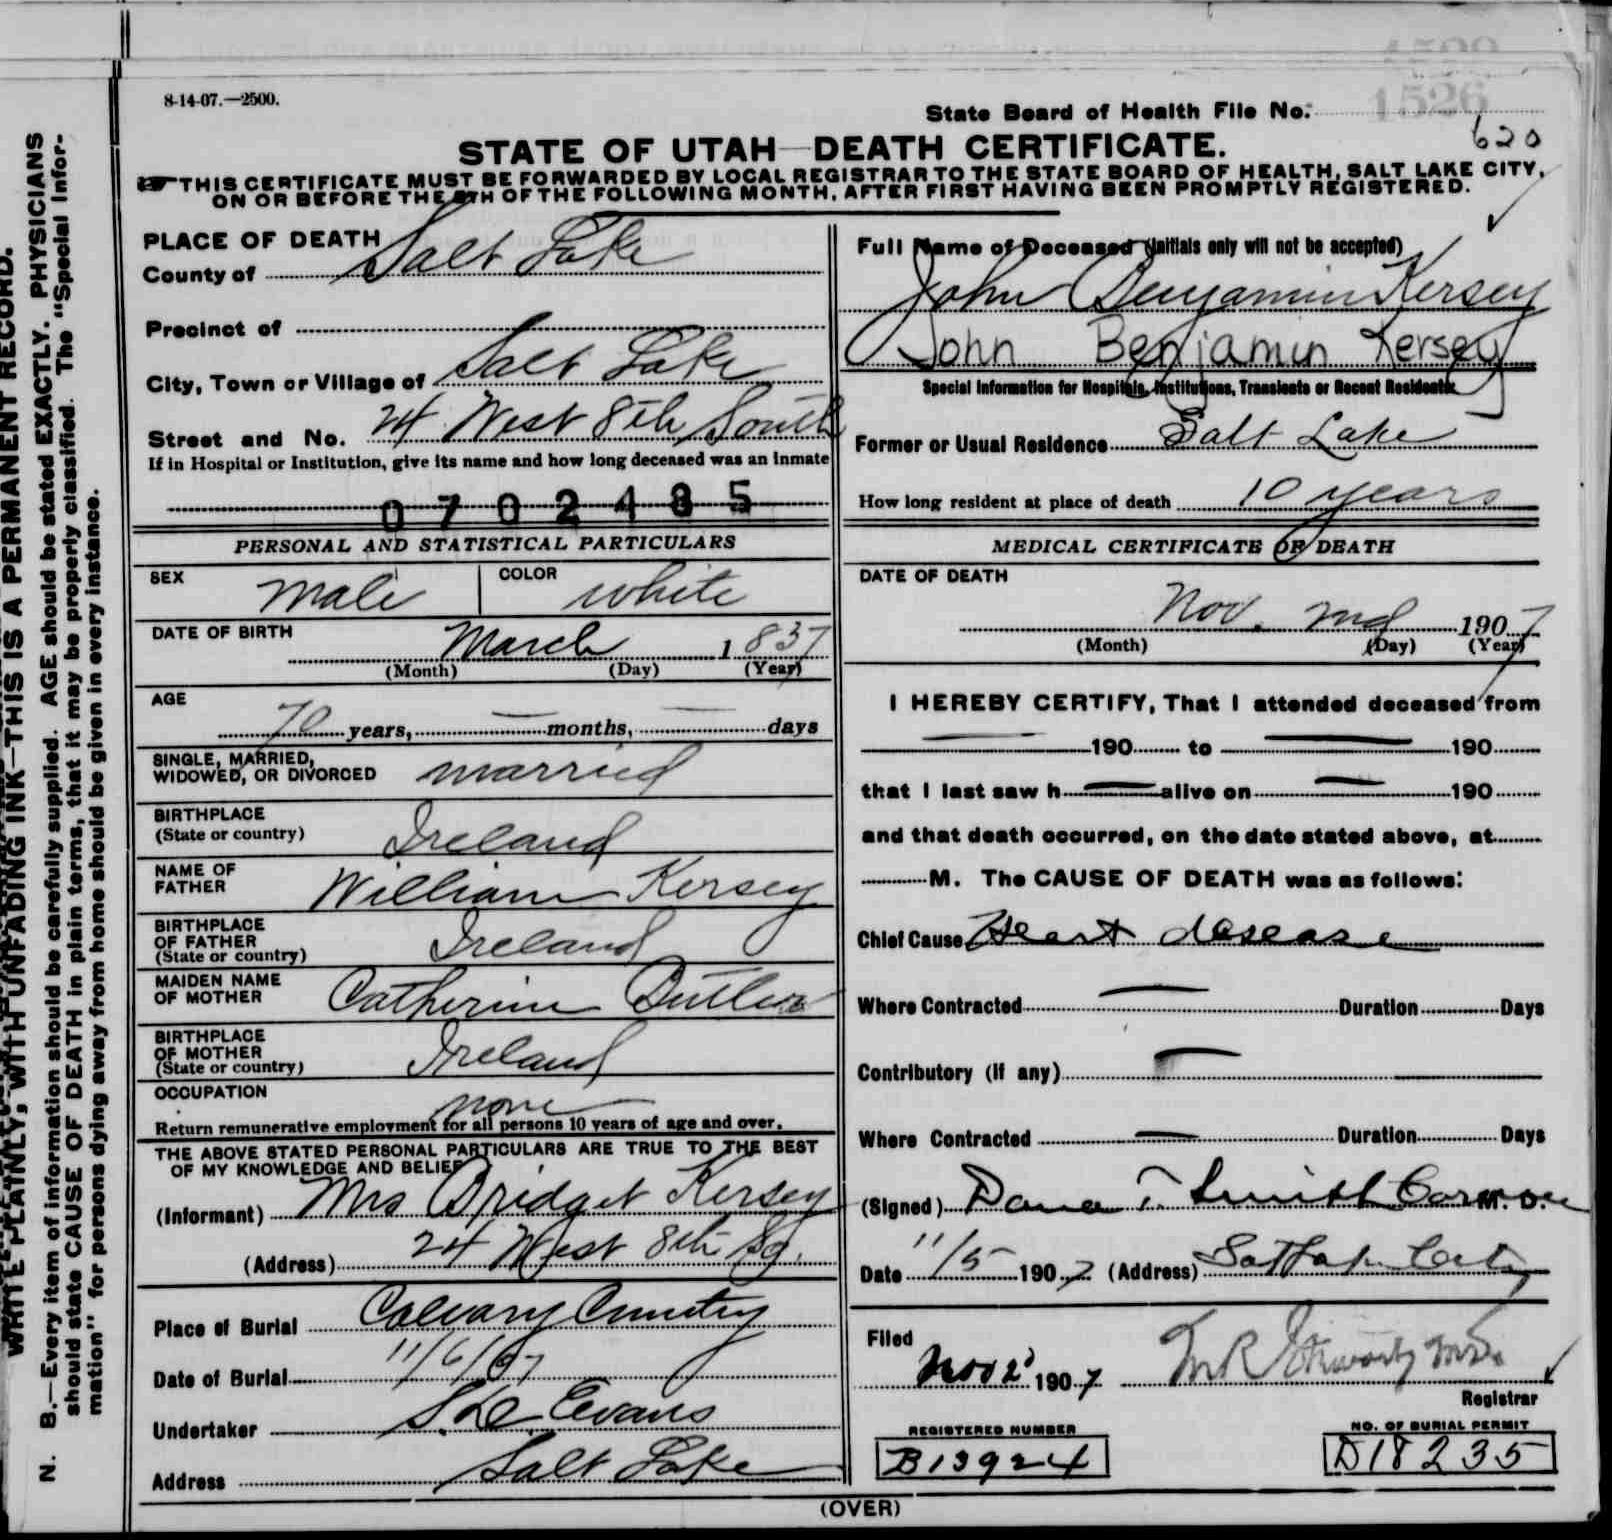 8-14-07.—2500.
State Board of Health File No.
1526
620
STATE OF UTAH—DEATH CERTIFICATE.
THIS CERTIFICATE MUST BE FORWARDED BY LOCAL REGISTRAR TO THE STATE BOARD OF HEALTH, SALT LAKE CITY,
ON OR BEFORE THE 5TH OF THE FOLLOWING MONTH, AFTER FIRST HAVING BEEN PROMPTLY REGISTERED.
PLACE OF DEATH
County of Salt Lake
Precinct of
City, Town or Village of Salt Lake
Street and No. 24 West 8th South
If in Hospital or Institution, give its name and how long deceased was an inmate
0702485
PERSONAL AND STATISTICAL PARTICULARS
SEX male COLOR white
DATE OF BIRTH
March 1837
(Month) (Day) (Year)
AGE
70 years, — months, — days
SINGLE, MARRIED,
WIDOWED, OR DIVORCED married
BIRTHPLACE
(State or country) Ireland
NAME OF
FATHER William Kersey
BIRTHPLACE
OF FATHER
(State or country) Ireland
MAIDEN NAME
OF MOTHER Catherine Butler
BIRTHPLACE
OF MOTHER
(State or country) Ireland
OCCUPATION
none
Return remunerative employment for all persons 10 years of age and over.
THE ABOVE STATED PERSONAL PARTICULARS ARE TRUE TO THE BEST
OF MY KNOWLEDGE AND BELIEF
(Informant) Mrs Bridget Kersey
(Address) 24 West 8th So.
Place of Burial Calvary Cemetery
Date of Burial 11/6/07
Undertaker S. D. Evans
Address Salt Lake
Full Name of Deceased (Initials only will not be accepted)
John Benjamin Kersey
John Benjamin Kersey
Special Information for Hospitals, Institutions, Transients or Recent Residents.
Former or Usual Residence Salt Lake
How long resident at place of death 10 years
MEDICAL CERTIFICATE OF DEATH
DATE OF DEATH
Nov. 2nd 1907
(Month) (Day) (Year)
I HEREBY CERTIFY, That I attended deceased from
— 190 to — 190
that I last saw h — alive on — 190
and that death occurred, on the date stated above, at
M. The CAUSE OF DEATH was as follows:
Chief Cause Heart desease
Where Contracted — Duration Days
Contributory (If any) —
Where Contracted — Duration Days
(Signed) Dana T. Smith Coroner M. D.
Date 11/5 1907 (Address) Salt Lake City
Filed
Nov 2 1907
Registrar
REGISTERED NUMBER
B13924
NO. OF BURIAL PERMIT
D18235
(OVER)
WRITE PLAINLY, WITH UNFADING INK—THIS IS A PERMANENT RECORD.
N. B.—Every item of information should be carefully supplied. AGE should be stated EXACTLY. PHYSICIANS
should state CAUSE OF DEATH in plain terms, that it may be properly classified. The "Special Infor-
mation" for persons dying away from home should be given in every instance.